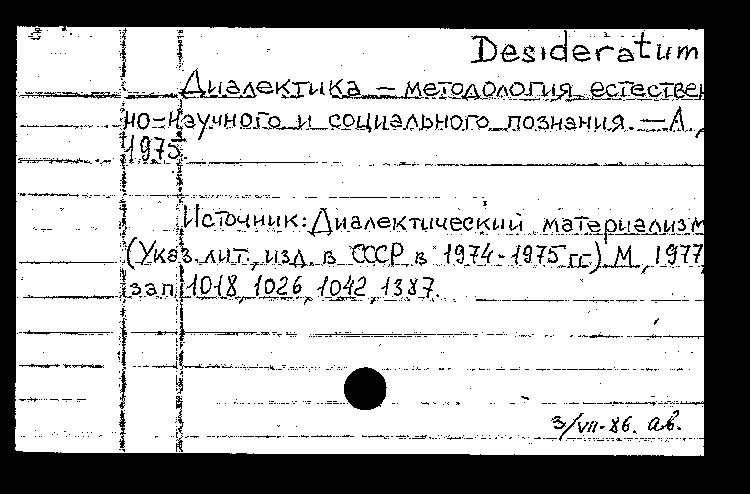 Desideratum
Диалектика — методология естествен
но-научного и социального познания. — А.,
1975.
Источник: Диалектический материализм
(Указ. лит., изд. в СССР в 1974-1975 гг.) М., 1977,
зап. 1018, 1026, 1042, 1387.
3/VII-86. ав.